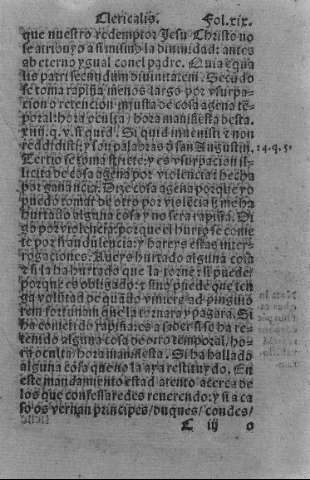 Clericalis. Fol.xix.
que nuestro redemptor Jesu Christo no
se atribuyo a si mismo la diuinidad: antes
ab eterno ygual con el padre. Quia equa
lis patri secundum diuinitatem. Secūdo
se toma rapiña menos largo por vsurpa-
cion o retencion injusta de cosa agena tē-
poral: hora oculta / hora manifiesta desta.
xiiij. q. v. si quid. Si quid inuenisti et non
reddidisti: y son palabras d̄ san Augustin.
14.q.5.
Tertio se toma stricte: y es vsurpacion il-
licita de cosa agena por violencia: hecha
por ganancia. Dize cosa agena porque yo
puedo tomar de otro por violēcia q̄ me ha
hurtado alguna cosa y no sera rapiña. Di
go por violencia: porque el hurto se come
te por fraudulencia: y hareys estas inter-
rogaciones. Aueys hurtado alguna cosa
et si la ha hurtado que la torne: si puede/
porque es obligado: et sino puede que ten
ga volūtad de quādo viniere ad pinguiorem
fortunam que la tornara y pagara. Si
ha cometido rapiñares a saber si se ha re-
tenido alguna cosa de otro temporal / ho-
ra oculta / hora manifiesta. Si ha hallado
alguna cosa que no la aya restituydo. En
este mandamiento estad atento acerca de
los que confessaredes reuerendo: y si a ca
so os vernan principes / duques / condes /
C iij o